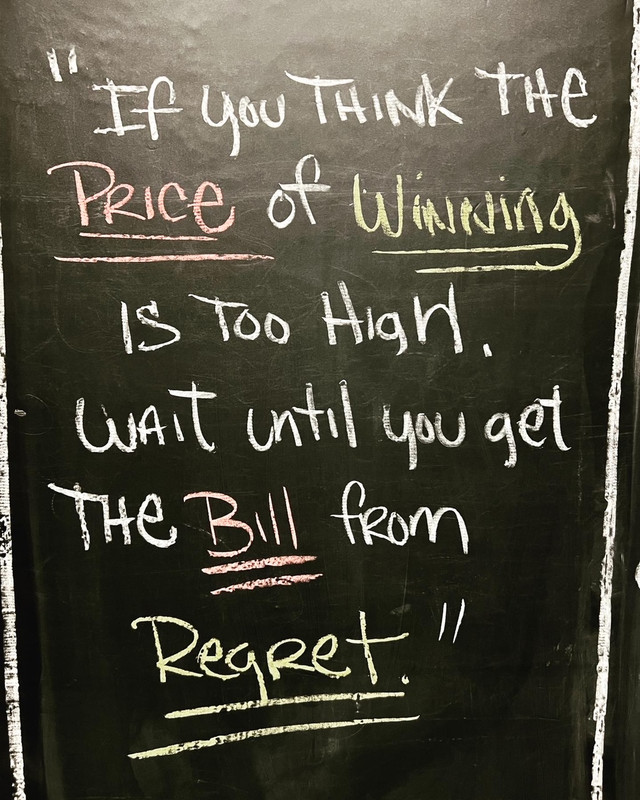 "If you THINK THE
PRICE of Winning
IS TOO HIGH.
WAIT until you get
THE Bill from
Regret."